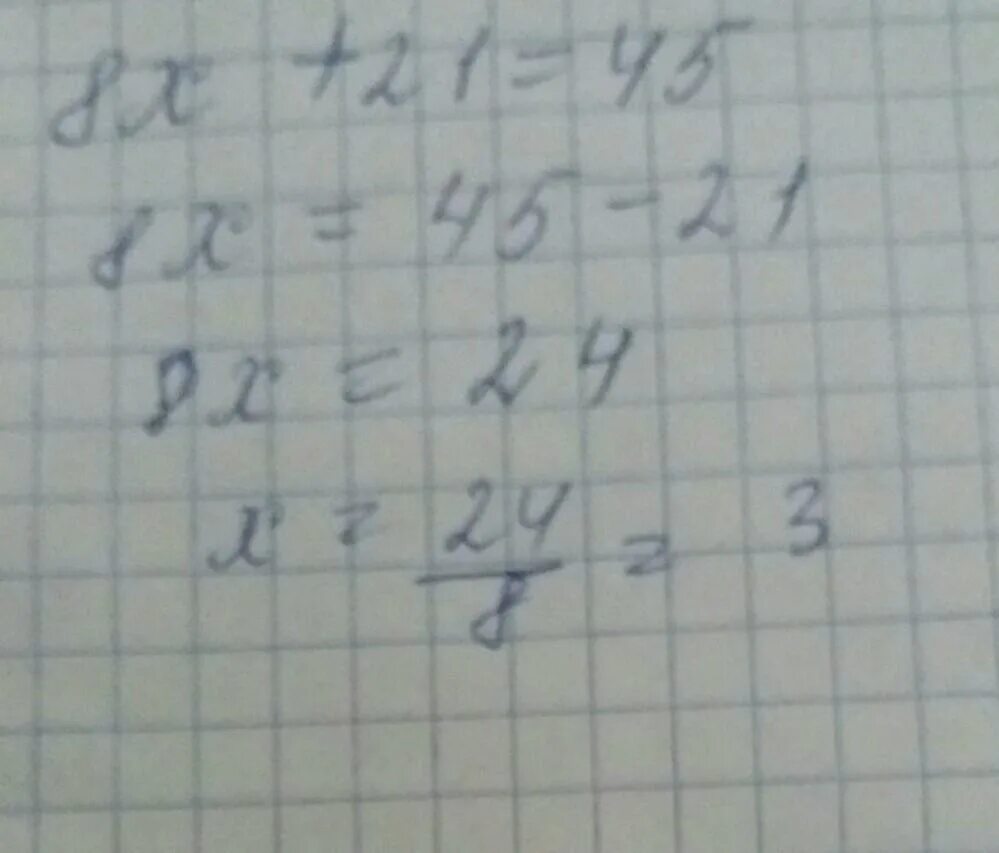 8x + 21 = 45
8x = 45 - 21
8x = 24
x = 24/8 = 3